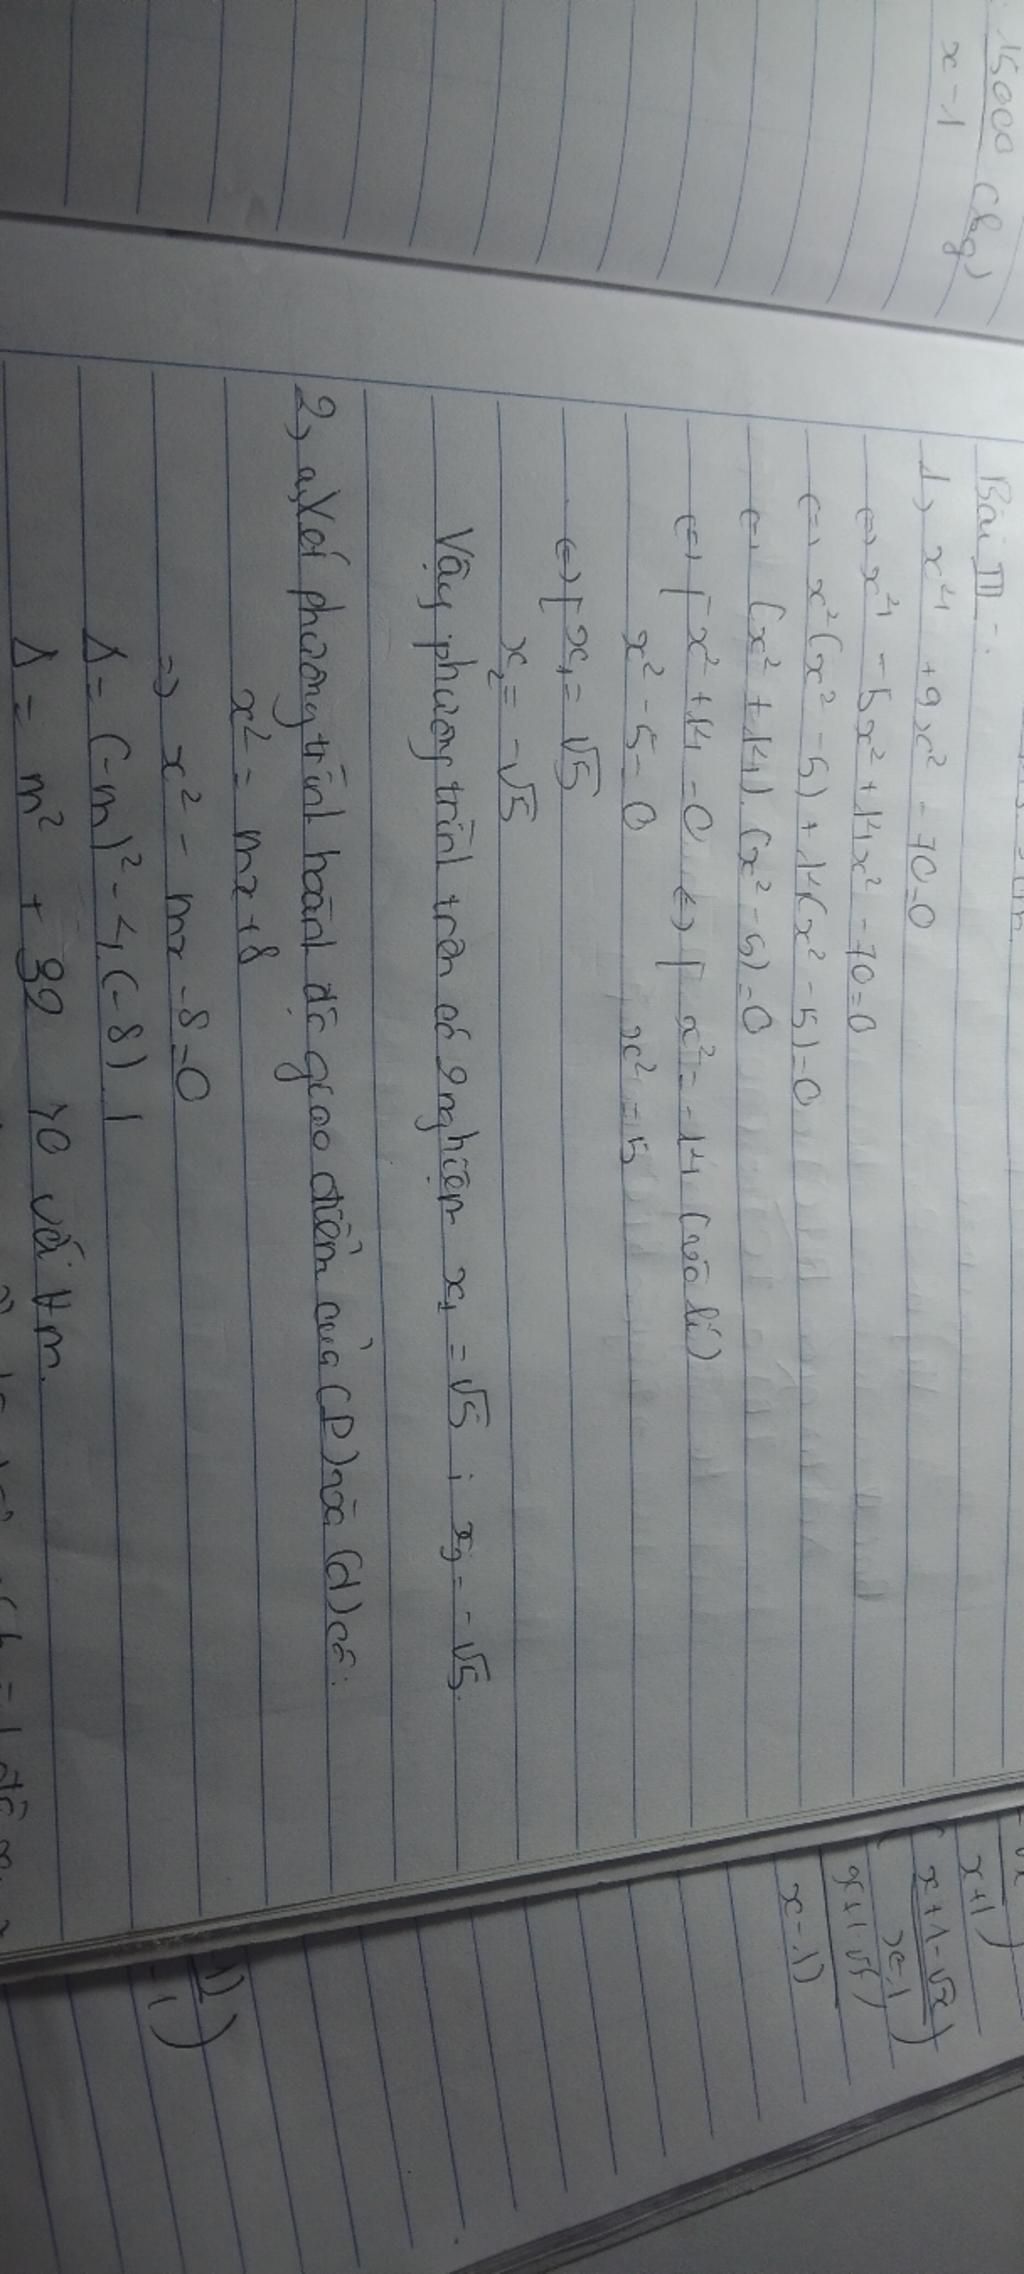 15000 (kg)
x-1
Bài III:
1, x⁴ + 9x² - 70=0
(=) x⁴ - 5x² + 14x² - 70=0
(=) x²(x² - 5) + 14(x² - 5)=0
(=) (x² + 14).(x² - 5)=0
(=) [ x² + 14 = 0 (=) [ x² = -14 (vô lí)
x² - 5=0 x² = 5
(=) [ x₁ = √5
x₂ = -√5
Vậy phương trình trên có 2 nghiệm x₁ = √5 ; x₂ = -√5.
2, a, Xét phương trình hoành độ giao điểm của (P) và (d) có:
x² = mx+8
=) x² - mx -8=0
Δ = (-m)² - 4.(-8).1
Δ = m² + 32 >0 với ∀m.
x+1)
x+1-√x
x-1
x+1-√x
x-1)
-1)